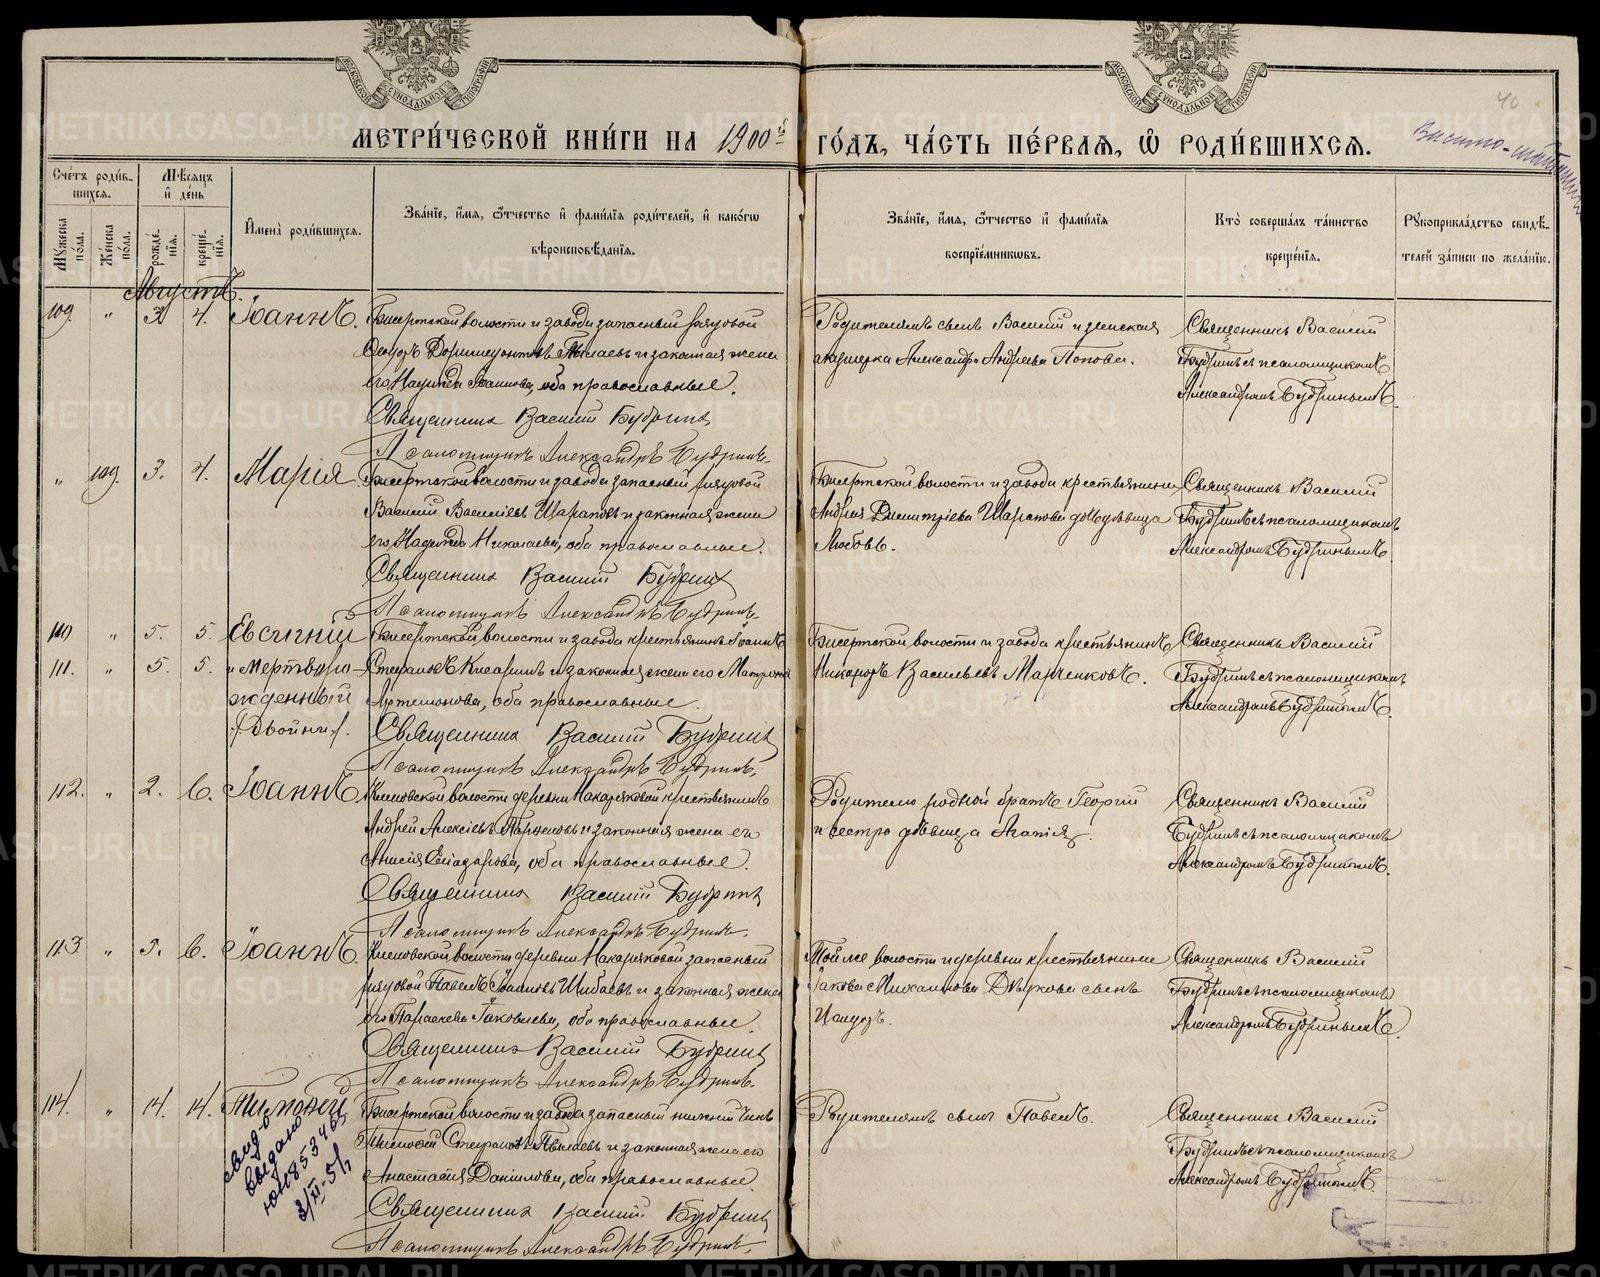 МЕТРИ́ЧЕСКОЙ КНИ́ГИ НА 1900й ГО́ДЪ, ЧА́СТЬ ПЕ́РВАѦ, Ѡ҆ РОДИ́ВШИХСѦ.
40
МОСКОВСКОЙ СѴНОДАЛЬНОЙ ТИПОГРАФІИ
МОСКОВСКОЙ СѴНОДАЛЬНОЙ ТИПОГРАФІИ
Сче́тъ роди́вшихсѧ.
Мѣ́сѧцъ и҆ де́нь
Мꙋ́жеска по́ла.
Же́нска по́ла.
рожде́нїѧ.
креще́нїѧ.
И҆мена̀ роди́вшихсѧ.
Зва́нїе, и҆́мѧ, ѻ҆́тчество и҆ фами́лїѧ роди́телей, и҆ како́гѡ вѣроисповѣ́данїѧ.
Зва́нїе, и҆́мѧ, ѻ҆́тчество и҆ фами́лїѧ воспрїе́мникѡвъ.
Кто̀ соверша́лъ та́инство креще́нїѧ.
Рꙋкоприкла́дство свидѣ́телей за́писи по жела́нїю.
Августъ.
109. " 3. 4. Іоаннъ.
Бисертской волости и завода запасный рядовой
и законная жена
его Іоаннова, оба православные.
Священникъ Василий Будринъ
Псаломщикъ Александръ Будринъ.
Родителямъ сынъ Василий и земская
акушерка Александра Андреева Попова.
Священникъ Василий
Будринъ съ псаломщикомъ
Александромъ Будринымъ.
" 109. 3. 4. Марія.
Бисертской волости и завода запасный рядовой
Василий Васильевъ и законная жена
его Надежда Николаева, оба православные.
Священникъ Василий Будринъ
Псаломщикъ Александръ Будринъ.
Бисертской волости и завода крестьянина
Андрея Димитріева дѣвица
Любовь.
Священникъ Василий
Будринъ съ псаломщикомъ
Александромъ Будринымъ.
110. " 5. 5. Евсигній
111. " 5. 5. и мертворо-
жденный
/Двойни/.
Бисертской волости и завода крестьянинъ Іоаннъ
Стефановъ и законная жена его Матрона
Артемонова, оба православные.
Священникъ Василий Будринъ
Псаломщикъ Александръ Будринъ.
Бисертской волости и завода крестьянинъ
Никифоръ Васильевъ Марченковъ.
Священникъ Василий
Будринъ съ псаломщикомъ
Александромъ Будринымъ.
112. " 2. 6. Іоаннъ.
Кленовской волости деревни Макаряковой крестьянинъ
Андрей Алексіевъ и законная жена его
Анисія, оба православные.
Священникъ Василий Будринъ
Псаломщикъ Александръ Будринъ.
Родителю родной братъ Георгій
и сестра дѣвица Агапія.
Священникъ Василий
Будринъ съ псаломщикомъ
Александромъ Будринымъ.
113. " 5. 6. Іоаннъ.
Кленовской волости деревни Макаряковой запасный
рядовой Павелъ Іоанновъ Шибаевъ и законная жена
его Параскева Іаковлева, оба православные.
Священникъ Василий Будринъ
Псаломщикъ Александръ Будринъ.
Той же волости и деревни крестьянина
Іакова Михаилова сынъ
Священникъ Василий
Будринъ съ псаломщикомъ
Александромъ Будринымъ.
114. " 14. 14. Тимофей
свид-о
выдано
ЮЛ 853465
3/XI-51г
Бисертской волости и завода запасный нижній чинъ
Стефановъ и законная жена его
Анастасія Даніилова, оба православные.
Священникъ Василий Будринъ
Псаломщикъ Александръ Будринъ.
Родителямъ сынъ Павелъ.
Священникъ Василий
Будринъ съ псаломщикомъ
Александромъ Будринымъ.
METRIKI.GASO-URAL.RU